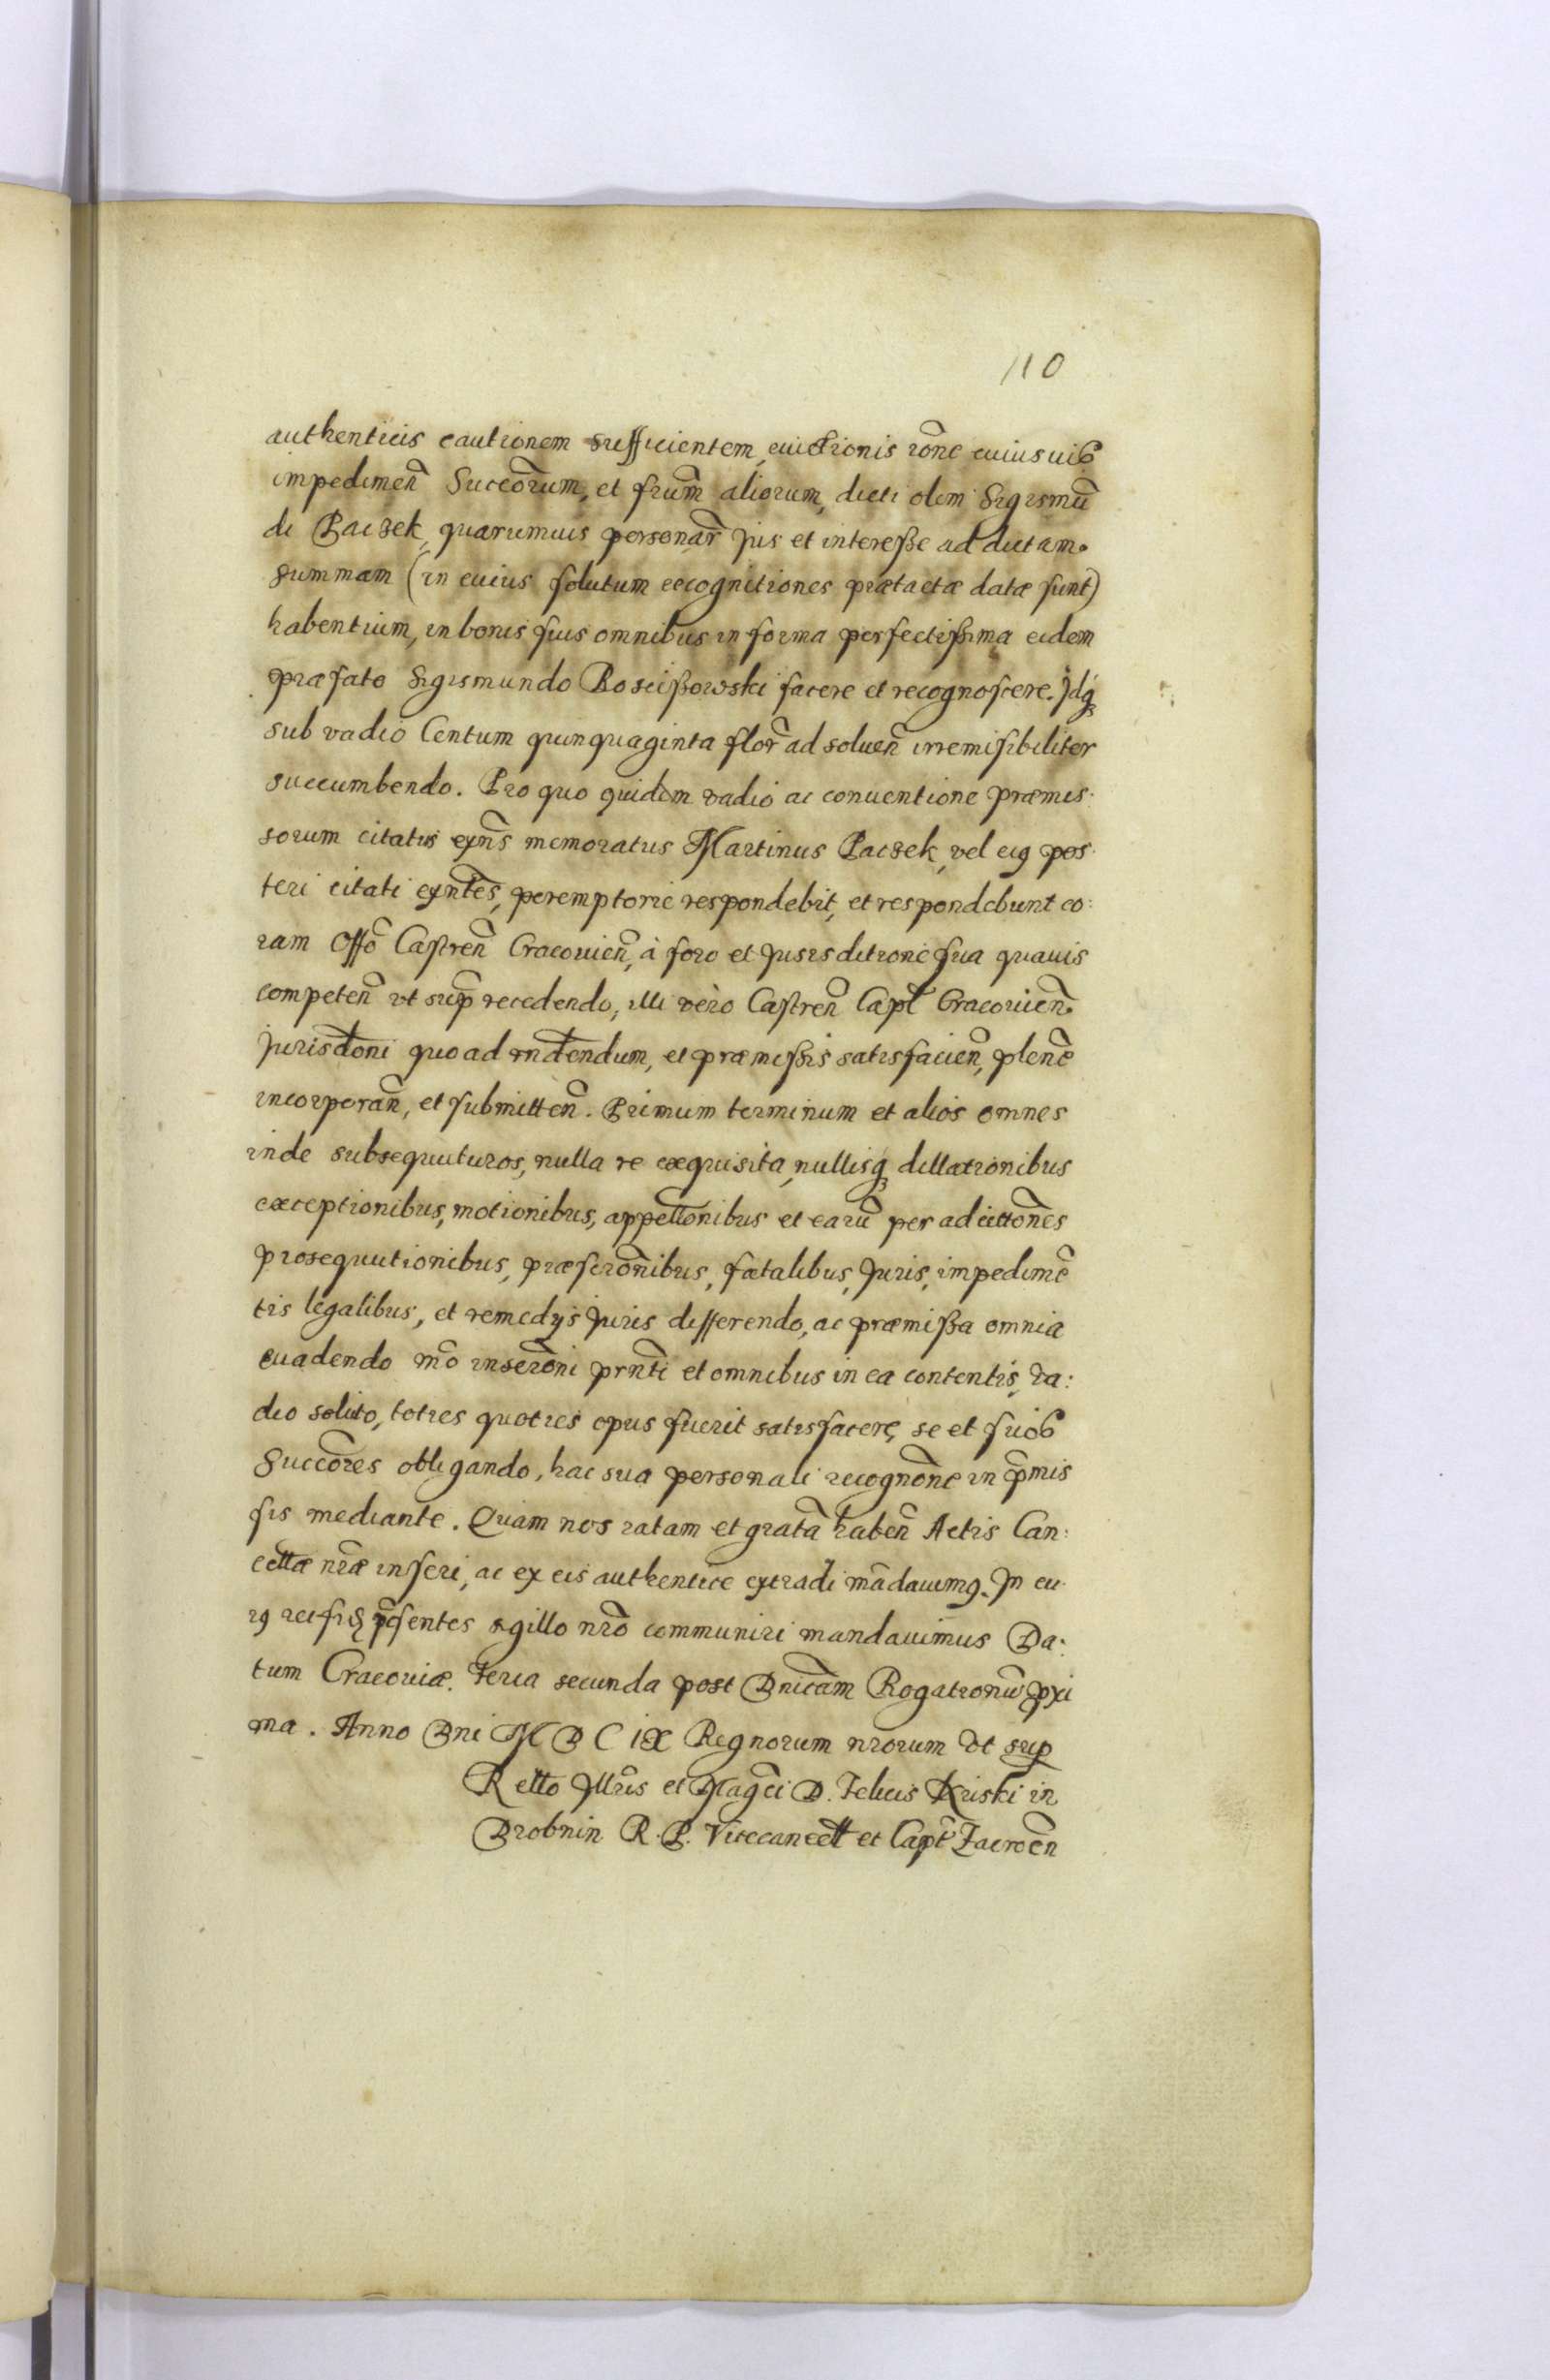 110
authenticis cautionem sufficientem, euictionis rõne cuiusuis
impedimeñ Succõrum, et frum̃ aliorum, dicti olim Sigismũ
di Paczek, quarumuis personar̃ Jus et interesse ad dictam
summam (in cuius solutum recognitiones prætactæ datæ sunt)
habentium, in bonis suis omnibus in forma perfectissima eidem
præfato Sigismundo Rosciszowski facere et recognoscere. Jdq́ꝫ
sub vadio Centum quinquaginta flor̃ ad solueñ irremisibiliter
succumbendo. Pro quo quidem vadio ac conuentione præmis
sorum citatus exñs memoratus Martinus Paczek, vel eiꝰ pos
teri citati exñtes, peremptorie respondebit, et respondebunt co:
ram Offõ Castreñ Cracouieñ, à foro et Jurisditione sua quauis
competeñ vt sup̃ recedendo, illi vèro Castreñ Capł Cracouieñ
Jurisdõni quoad rñdendum, et præmissis satisfacieñ, plenẽ
incorporañ, et submitteñ. Primum terminum et alios omnes
inde subsequuturos, nulla re exquisita, nullisq́ꝫ dillationibus
exceptionibus, motionibus, appellõnibus et earũ per adcittõnes
prosequutionibus, præscrõnibus, fatalibus, Juris, impedimẽ
tis legalibus, et remedijs Juris differendo, ac præmissa omnia
euadendo mõ inscrõni prñti et omnibus in ea contentis, va:
dio soluto, toties quoties opus fuerit satisfacere, se et suos
Succõres obligando, hac sua personali recognõne in p̃mis
sis mediante. Quam nos ratam et gratã habeñ Actis Can:
cełłæ nr̃æ inseri, ac ex eis authentice extradi mãdauimꝰ. Jn cu
iꝰ rei fidẽ p̃sentes sigillo nr̃o communiri mandauimus Da:
tum Cracouiæ. Feria secunda post Dnicãm Rogationũ p̃xi
ma. Anno Dni M D C IX Regnorum nrorum vt sup̃
Rełło Jllr̃is et Magc̃i D. Felicis Kriski in
Drobnin R. P. Vicecancełł et Capt̃ Zacroc̃en